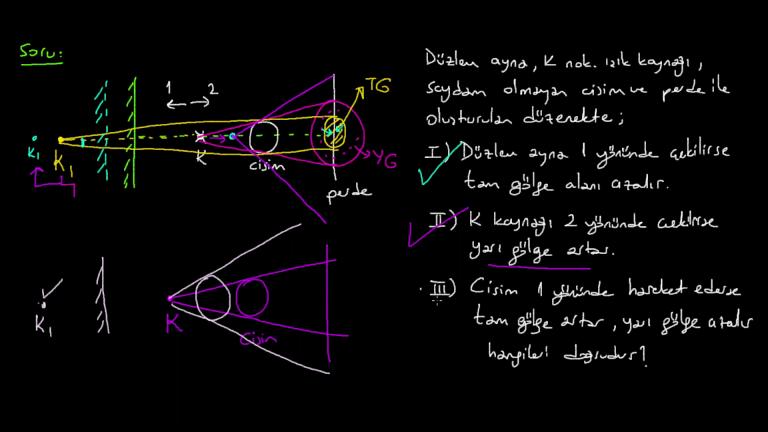 Soru:
1
2
TG
K₁
K₁
K
cisim
YG
perde
K₁
K
Cisim
Düzlem ayna, K nok. ışık kaynağı,
saydam olmayan cisim ve perde ile
oluşturulan düzenekte;
I) Düzlem ayna 1 yönünde çekilirse
tam gölge alanı azalır.
II) K kaynağı 2 yönünde çekilirse
yarı gölge artar.
III) Cisim 1 yönünde hareket ederse
tam gölge artar, yarı gölge azalır
hangileri doğrudur?